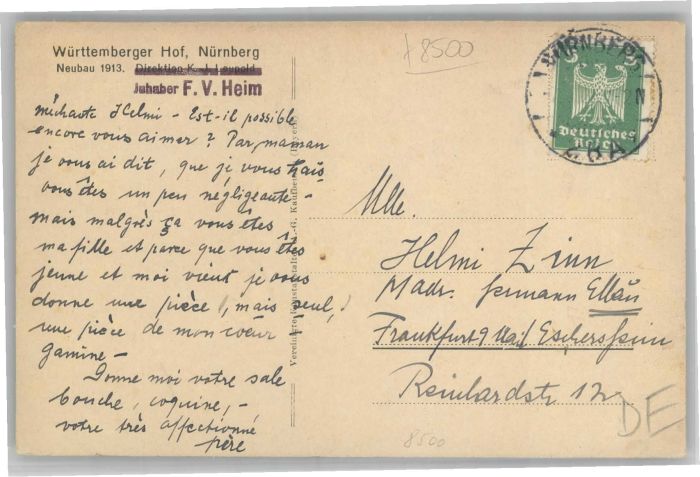 Württemberger Hof, Nürnberg
Neubau 1913. Direktion K. J. Leupold
Inhaber F. V. Heim
méchante Helmi - Est-il possible
encore vous aimer? Par maman
je vous ai dit, que je vous hais
vous êtes un peu négligeante -
mais malgrès ça vous êtes
ma fille et parce que vous êtes
jeune et moi vieux je vous
donne une pièce, mais seul,
une pièce de mon cœur -
gamine -
Donne moi votre sale
bouche, coquine, -
votre très affectionné
père
Vereinigte Kunstanstalten A.-G. Kaufbeuren (Bayern)
+8500
NÜRNBERG
Deutsches
Reich
Mlle.
Helmi Zinn
Madr. Hermann
Frankfurt a Main/Eschersheim
Reinhardstr 12
DE
8500